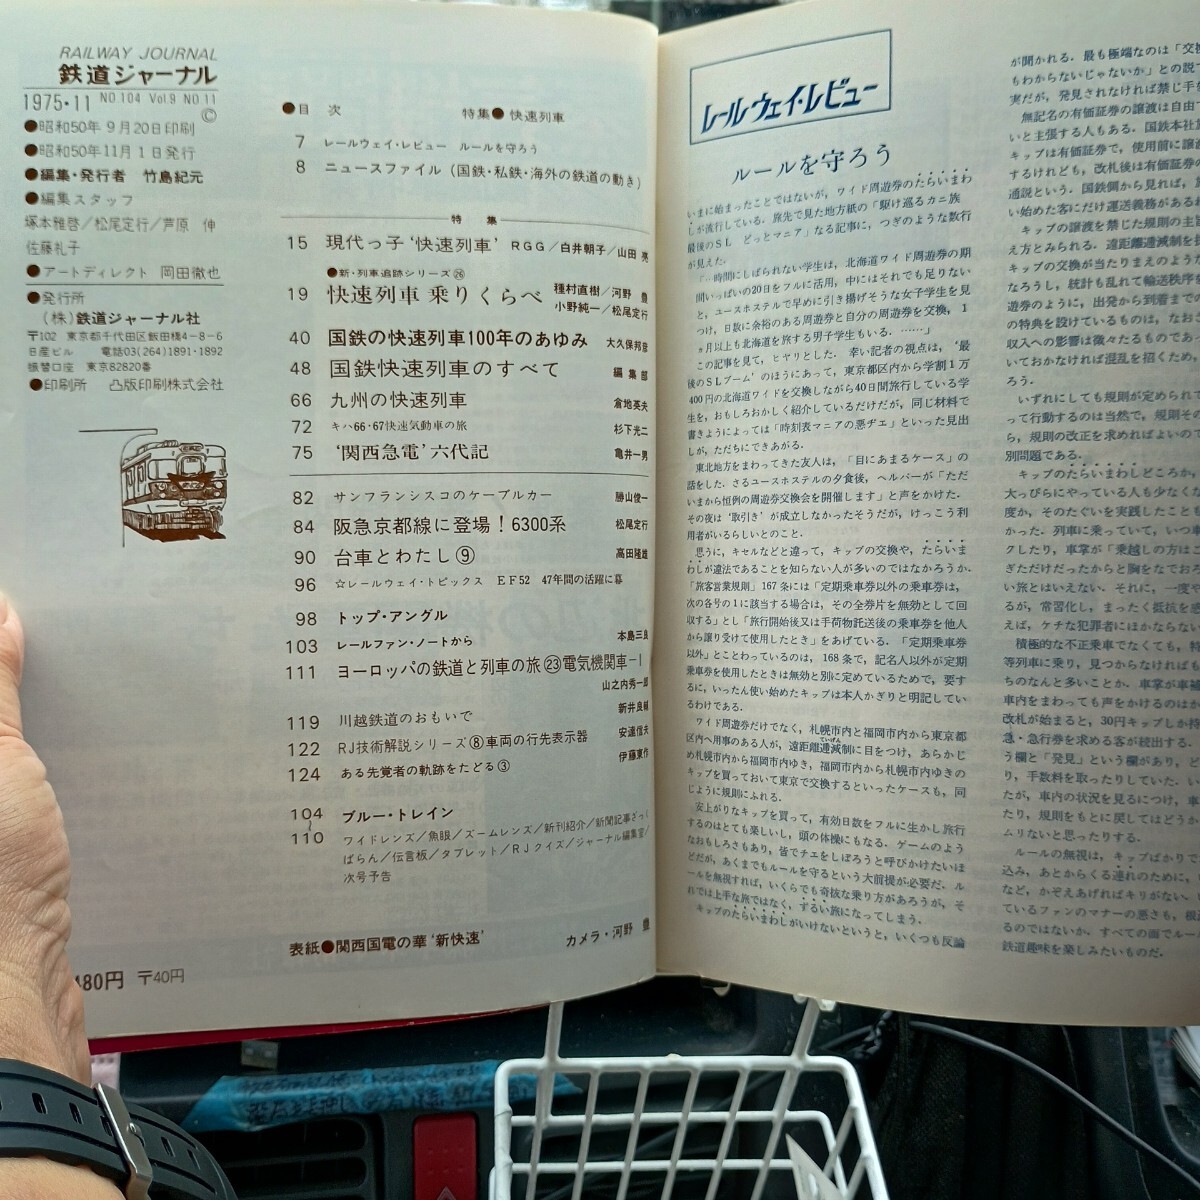 RAILWAY JOURNAL
鉄道ジャーナル
1975・11 NO.104 Vol.9 NO.11
©
●昭和50年9月20日印刷
●昭和50年11月1日発行
●編集・発行者 竹島紀元
●編集スタッフ
塚本雅啓／松尾定行／芦原 伸
佐藤礼子
●アートディレクト 岡田徹也
●発行所
(株)鉄道ジャーナル社
〒102 東京都千代田区飯田橋4-8-6
日産ビル 電話03(264)1891・1892
振替口座 東京82820番
●印刷所 凸版印刷株式会社
●目 次 特集●快速列車
7 レールウェイ・レビュー ルールを守ろう
8 ニュースファイル(国鉄・私鉄・海外の鉄道の動き)
特 集
15 現代っ子‘快速列車’ RGG／白井朝子／山田 亮
●新・列車追跡シリーズ㉖
19 快速列車 乗りくらべ 種村直樹／河野 豊
小野純一／松尾定行
40 国鉄の快速列車100年のあゆみ 大久保邦彦
48 国鉄快速列車のすべて 編集部
66 九州の快速列車 倉地英夫
72 キハ66・67快速気動車の旅 杉下光二
75 ‘関西急電’六代記 亀井一男
82 サンフランシスコのケーブルカー 勝山俊一
84 阪急京都線に登場！6300系 松尾定行
90 台車とわたし⑨ 高田隆雄
96 ☆レールウェイ・トピックス EF52 47年間の活躍に幕
98 トップ・アングル
103 レールファン・ノートから 本島三良
111 ヨーロッパの鉄道と列車の旅㉓電気機関車-Ⅰ
山之内秀一郎
119 川越鉄道のおもいで 新井良輔
122 RJ技術解説シリーズ⑧車両の行先表示器 安達信夫
124 ある先覚者の軌跡をたどる③ 伊藤東作
104
〜
110
ブルー・トレイン
ワイドレンズ／魚眼／ズームレンズ／新刊紹介／新聞記事ざっく
ばらん／伝言板／タブレット／RJクイズ／ジャーナル編集室／
次号予告
表紙●関西国電の華‘新快速’ カメラ・河野 豊
480円 〒40円
レールウェイ・レビュー
ルールを守ろう
いまに始まったことではないが，ワイド周遊券のたらいまわ
しが流行している．旅先で見た地方紙の「駆け巡るカニ族
最後のSL どっとマニア」なる記事に，つぎのような数行
が見えた．
「…時間にしばられない学生は，北海道ワイド周遊券の期
間いっぱいの20日をフルに活用，中にはそれでも足りない
と，ユースホステルで早めに引き揚げそうな女子学生を見
つけ，日数に余裕のある周遊券と自分の周遊券を交換，1
ヵ月以上も北海道を旅する男子学生もいる．……」
この記事を見て，ヒヤリとした．幸い記者の視点は，‘最
後のSLブーム’のほうにあって，東京都区内から学割1万
400円の北海道ワイドを交換しながら40日間旅行している学
生を，おもしろおかしく紹介しているだけだが，同じ材料で
書きようによっては「時刻表マニアの悪ヂエ」といった見出
しが，ただちにできあがる．
東北地方をまわってきた友人は，「目にあまるケース」の
話をした．さるユースホステルの夕食後，ヘルパーが「ただ
いまから恒例の周遊券交換会を開催します」と声をかけた．
その夜は‘取引き’が成立しなかったそうだが，けっこう利
用者がいるらしいとのこと．
思うに，キセルなどと違って，キップの交換や，たらいま
わしが違法であることを知らない人が多いのではなかろうか．
「旅客営業規則」167条には「定期乗車券以外の乗車券は，
次の各号の1に該当する場合は，その全券片を無効として回
収する」とし「旅行開始後又は手荷物託送後の乗車券を他人
から譲り受けて使用したとき」をあげている．「定期乗車券
以外」とことわっているのは，168条で，記名人以外が定期
乗車券を使用したときは無効と別に定めているためで，要す
るに，いったん使い始めたキップは本人かぎりと明記してい
るわけである．
ワイド周遊券だけでなく，札幌市内と福岡市内から東京都
区内へ用事のある人が，遠距離逓減制に目をつけ，あらかじ
め札幌市内から福岡市内ゆき，福岡市内から札幌市内ゆきの
キップを買っておいて東京で交換するといったケースも，同
じように規則にふれる．
安上がりなキップを買って，有効日数をフルに生かし旅行
するのはとても楽しいし，頭の体操にもなる．ゲームのよう
なおもしろさもあり，皆でチエをしぼろうと呼びかけたいほ
どだが，あくまでもルールを守るという大前提が必要だ．ル
ールを無視すれば，いくらでも奇抜な乗り方があろうが，そ
れでは上手な旅ではなく，ずるい旅になってしまう．
キップのたらいまわしがいけないというと，いくつも反論
が聞かれる．最も極端なのは「交換
もわからないじゃないか」との説で
実だが，発見されなければ禁じ手な
無記名の有価証券の譲渡は自由で
いと主張する人もある．国鉄本社
キップは有価証券で，使用前に譲渡
するけれども，改札後は有価証券の
通説という．国鉄側から見れば，旅
い始めた客にだけ運送義務がある
キップの譲渡を禁じた規則の主
え方とみられる．遠距離逓減制を
キップの交換が当たりまえのような
なろうし，統計も乱れて輸送秩序
遊券のように，出発から到着までの
の特典を設けているものは，なおさ
収入への影響は微々たるものであ
いておかなければ混乱を招くため，
ろう．
いずれにしても規則が定められて
って行動するのは当然で，規則その
ら，規則の改正を求めればよいので
別問題である．
キップのたらいまわしどころか，
大っぴらにやっている人も少なくな
度か，そのたぐいを実践したことも
かった．列車に乗っていて，いつ車
クしたり，車掌が「乗越しの方はご
ぎただけだったからと胸をなでおろ
い旅とはいえない．それに，一度や
るが，常習化し，まったく抵抗を感
えば，ケチな犯罪者にほかならない
積極的な不正乗車でなくても，特
等列車に乗り，見つからなければも
ちのなんと多いことか．車掌が車補
車内をまわっても声をかけるのはか
改札が始まると，30円キップしか持
急・急行券を求める客が続出する．
う欄と「発見」という欄があり，ど
り，手数料を取ったりしていた．い
たが，車内の状況を見るにつけ，車
たり，規則をもとに戻してはどうか
ムリないと思ったりする．
ルールの無視は，キップばかりで
込み，あとからくる連れのために，
など，かぞえあげればキリがない．
ているファンのマナーの悪さも，根
るのではないか．すべての面でルール
鉄道趣味を楽しみたいものだ．